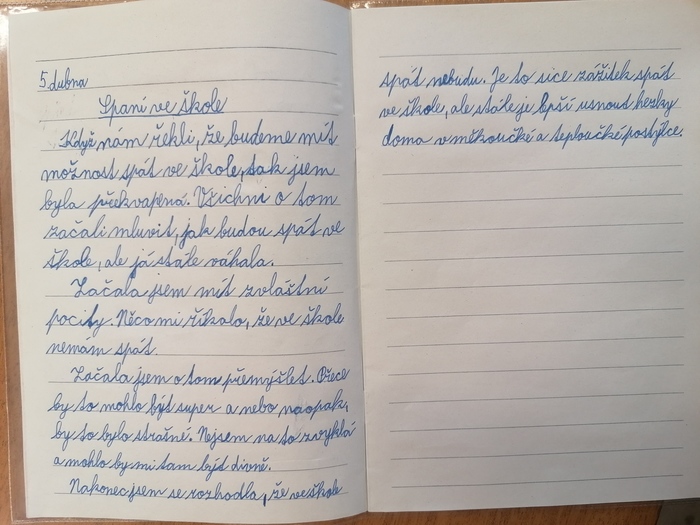 5. dubna
Spaní ve škole
Když nám řekli, že budeme mít
možnost spát ve škole, tak jsem
byla překvapená. Všichni o tom
začali mluvit, jak budou spát ve
škole, ale já stále váhala.
Začala jsem mít zvláštní
pocity. Něco mi říkalo, že ve škole
nemám spát.
Začala jsem o tom přemýšlet. Přece
by to mohlo být super a nebo naopak,
by to bylo strašné. Nejsem na to zvyklá
a mohlo by mi tam být divně.
Nakonec jsem se rozhodla, že ve škole
spát nebudu. Je to sice zážitek spát
ve škole, ale stále je lepší usnout hezky
doma v měkoučké a teploučké postýlce.